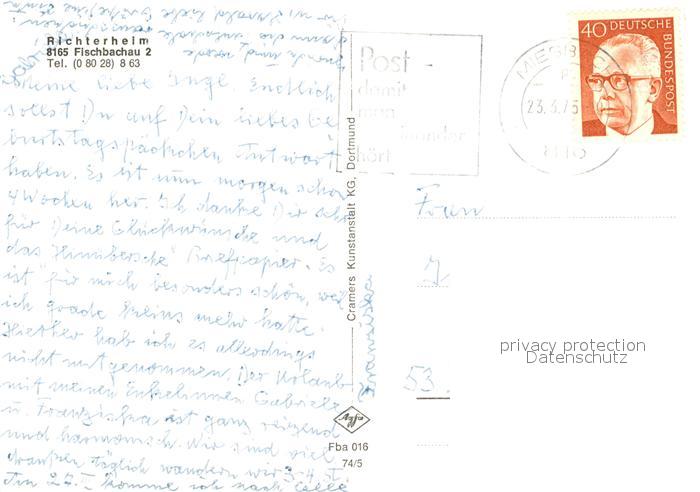 Richterheim
8165 Fischbachau 2
Tel. (0 80 28) 8 63
Meine liebe Inge. Endlich
sollst Du auf Dein liebes Ge
burtstagspäckchen Antwort
haben. Es ist nun morgen schon
4 Wochen her. Ich danke Dir sehr
für Deine Glückwünsche und
das Briefpapier. Es
ist für mich besonders schön, weil
ich grade keins mehr hatte.
Hierher hab ich es allerdings
nicht mitgenommen. Der Urlaub
mit meinen Enkelinnen Gabriele
u. Franziska ist ganz reizend
und harmonisch. Wir sind viel
draußen täglich wandern wir 3-4 St.
Am 27. komme ich nach Celle
Franziska
Cramers Kunstanstalt KG, Dortmund
Agfa
Fba 016
74/5
Post -
damit
man
einander
hört
23.3.75
40 DEUTSCHE
BUNDESPOST
Frau
J
53.
privacy protection
Datenschutz